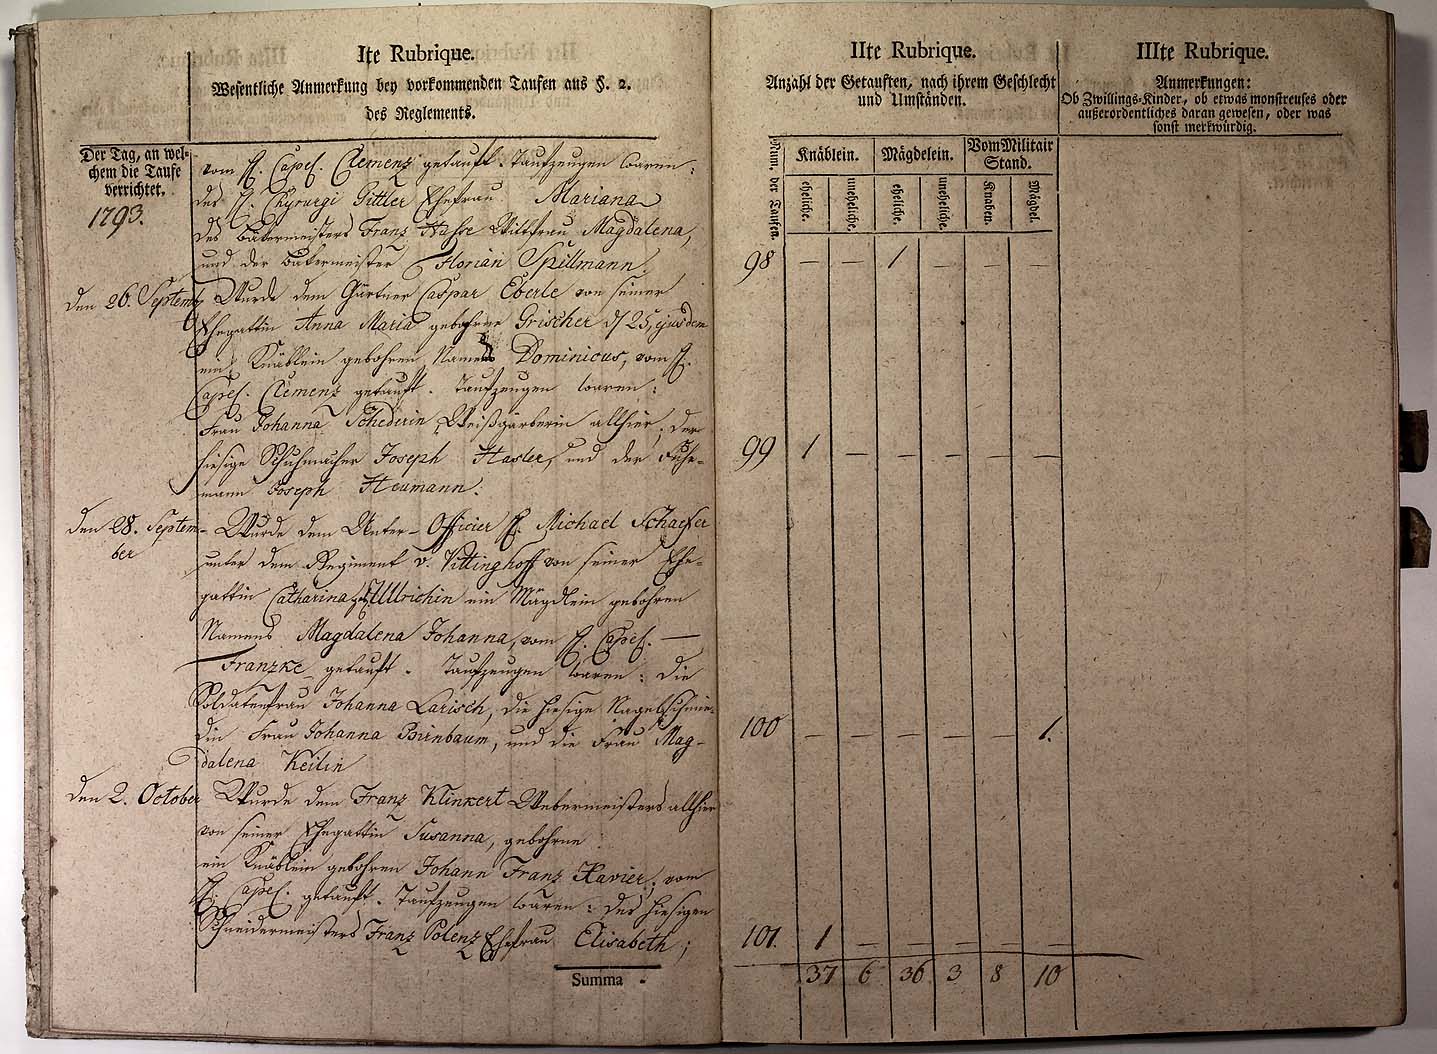 Ite Rubrique.
Wesentliche Anmerkung bey vorkommenden Taufen aus §. 2.
des Reglements.
Der Tag, an wel-
chem die Taufe
verrichtet.
1793.
vom H. Capel. Clemenz getauft. Taufzeugen waren:
des H. Chyrurgi Gittler Ehefrau Mariana
des Bäkermeisters Franz Hasse Wittfrau Magdalena,
und der Bäkermeister Florian Spillmann.
den 26. Septemb. Wurde dem Gärtner Caspar Eberle von seiner
Ehegattin Anna Maria gebohrne Grischer d 25. ejusdem
ein Knäblein gebohren, Namens Dominicus, vom H.
Capel. Clemenz getauft. Taufzeugen waren:
Frau Johanna Schederin Weißgärberin allhier, der
hiesige Schuhmacher Joseph Hasler, und der Fuhr-
mann Joseph Heumann.
den 28. Septem- Wurde dem Unter-Officier H. Michael Schaefer
ber unter dem Regiment v. Vittinghoff von seiner Ehe-
gattin Catharina Ullrichin ein Mägdlein gebohren
Namens Magdalena Johanna, vom H. Capel. —
Franzke getauft. Taufzeugen waren: die
Soldatenfrau Johanna Larisch, die hiesige Nagelschmie-
din Frau Johanna Birnbaum, und die Frau Mag-
dalena Keilin
den 2. October Wurde dem Franz Klinkert Webermeisters allhier
von seiner Ehegattin Susanna, gebohrne
ein Knäblein gebohren Johann Franz Xavier, vom
H. Capel. getauft. Taufzeugen waren: des hiesigen
Schneidermeisters Franz Polenz Ehefrau Elisabeth;
Summa
IIte Rubrique.
Anzahl der Getauften, nach ihrem Geschlecht
und Umständen.
Num. der Taufen.
Knäblein. Mägdelein. Vom Militair
Stand.
eheliche. uneheliche. eheliche. uneheliche. Knaben. Mägdel.
98 — — 1 — —
99 1 — — — — —
100 — — — — — 1.
101. 1 — — — — —
37 6 36 3 8 10
IIIte Rubrique.
Anmerkungen:
Ob Zwillings-Kinder, ob etwas monstreuses oder
außerordentliches daran gewesen, oder was
sonst merkwürdig.